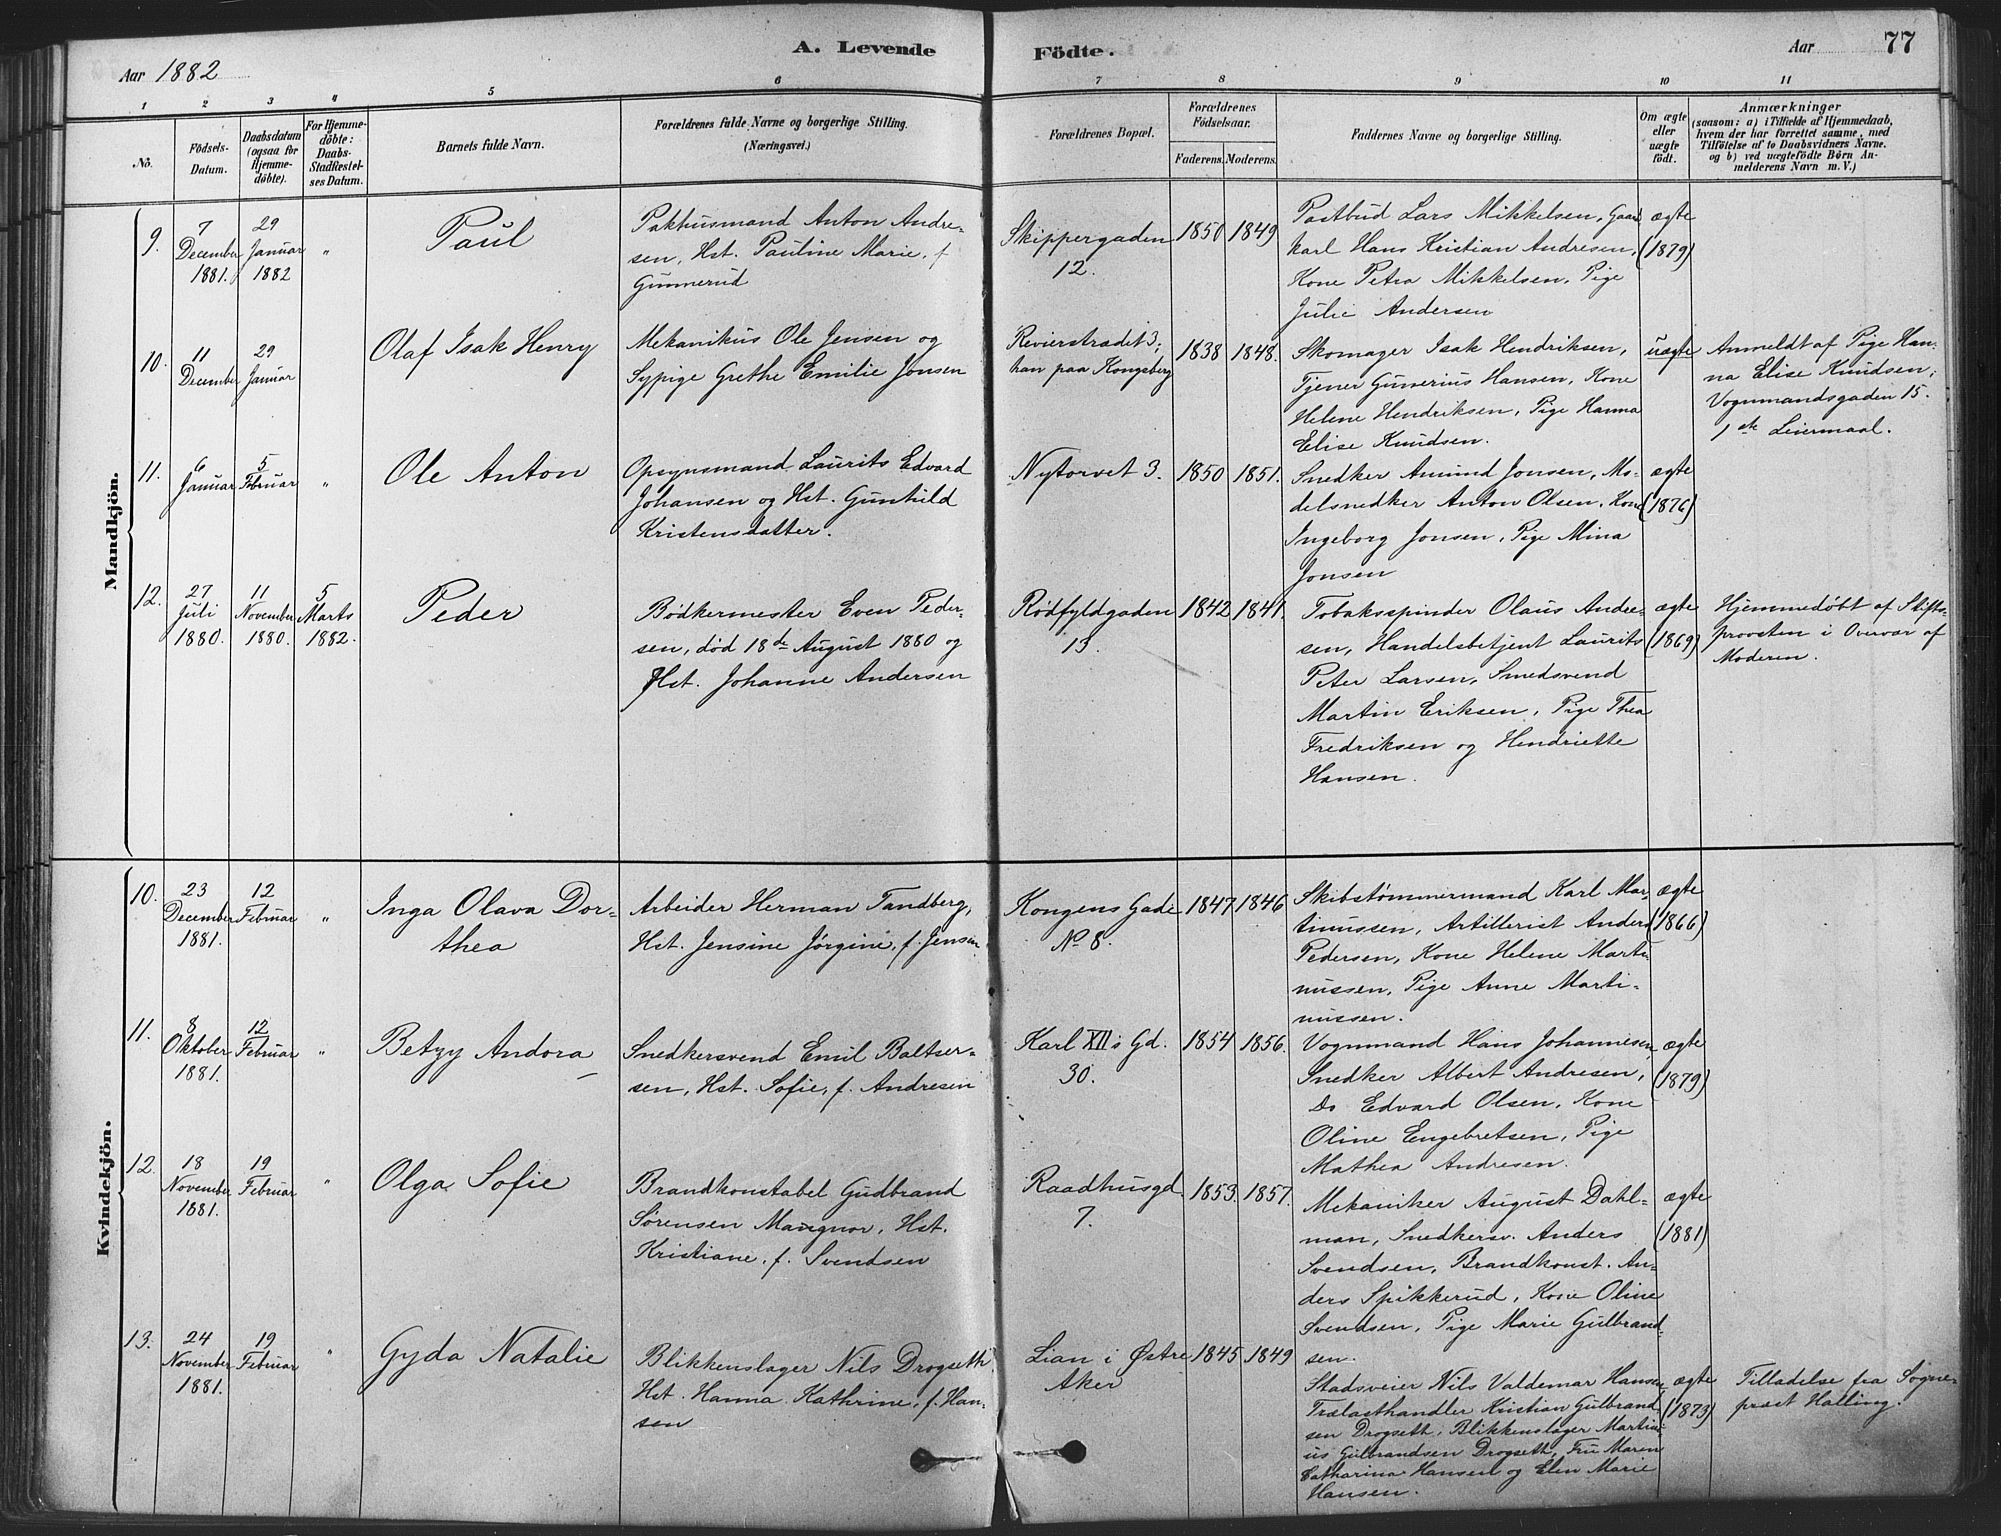 A. Levende Födte.
Aar 1882
Aar 77
1 2 3 4 5 6 7 8 9 10 11
No.
Födsels-Datum.
Daabsdatum (ogsaa for Hjemme-döbte).
For Hjemme-döbte: Daabs-Stadfæstel-ses Datum.
Barnets fulde Navn.
Forældrenes fulde Navne og borgerlige Stilling. (Næringsvei.)
Forældrenes Bopæl.
Forældrenes Födselsaar.
Faderens. Moderens.
Faddernes Navne og borgerlige Stilling.
Om ægte eller uægte födt.
Anmærkninger
(saasom: a) i Tilfælde af Hjemmedaab,
hvem der har forrettet samme, med
Tilföielse af to Daabsvidners Navne.
og b) ved uægtefödte Börn An-
melderens Navn m. V.)
Mandkjön.
9.
7
December
1881.
29
Januar
1882
"
Paul
Pakhusmand Anton Andre-
sen, Hst. Pauline Marie, f
Gunnerud
Skippergaden
12.
1850 1849
Postbud Lars Mikkelsen, Gaard
karl Hans Kristian Andresen,
Kone Petra Mikkelsen, Pige
Julie Andersen
ægte
(1879)
10.
11
December
29
Januar
Olaf Isak Henry
Mekanikus Ole Jensen og
Sypige Grethe Emilie Jonsen
Revierstrædet 3;
han paa Kongsberg
1838 1848.
Skomager Isak Hendriksen,
Tjener Gunerius Hansen, Kone
Helene Hendriksen, Pige Hanna
Elise Knudsen.
uægte
Anmeldt af Pige Han-
na Elise Knudsen,
Vognmandsgaden 15.
1ste Leiermaal.
11.
6
Januar
5
Februar
"
Ole Anton
Opsynsmand Laurits Edvard
Johansen og Hst. Gunhild
Kristensdatter.
Nytorvet 3.
1850 1851.
Snedker Amund Jonsen, Mo-
delsnedker Anton Olsen, Kone
Ingeborg Jonsen, Pige Mina
Jonsen
ægte
(1876)
12.
27
Juli
1880.
11
November
1880.
5
Marts
1882.
Peder
Bødkermester Even Peder-
sen, død 18de August 1880 og
Hst. Johanne Andersen
Rødfyldgaden
13.
1842 1841.
Tobaksspinder Olaus Andre-
sen, Handelsbetjent Laurits
Peter Larsen, Smedsvend
Martin Eriksen, Pige Thea
Fredriksen og Hendriette
Hansen.
ægte
(1869)
Hjemmedøbt af Stifts-
provsten i Overvær af
Moderen.
Kvindekjön.
10.
23
December
1881.
12
Februar
"
Inga Olava Dor-
thea
Arbeider Herman Tandberg,
Hst. Jensine Jørgine, f. Jensen
Kongens Gade
No 8.
1847 1846
Skibstømmermand Karl Mar-
tinussen, Artillerist Anders
Pedersen, Kone Helene Marti-
nussen, Pige Anne Marti-
nussen.
ægte
(1866)
11.
8
Oktober
1881.
12
Februar
"
Betzy Andora
Snedkersvend Emil Baltser-
sen, Hst. Sofie, f. Andresen
Karl XII's Gd.
30.
1854 1856.
Vognmand Hans Johannesen,
Snedker Albert Andresen,
Do Edvard Olsen, Kone
Oline Engebretsen, Pige
Mathea Andresen.
ægte
(1879)
12.
18
November
1881.
19
Februar
"
Olga Sofie
Brandkonstabel Gudbrand
Sørensen Mangnor, Hst.
Kristiane, f. Svendsen
Raadhusgd.
7.
1853. 1857.
Mekaniker August Dahl-
man, Snedkersv. Anders
Svendsen, Brandkonst. An-
ders Spikkerud, Kone Oline
Svendsen, Pige Marie Gulbrand-
sen.
ægte
(1881)
13.
24
November
1881.
19
Februar
"
Gyda Natalie
Blikkenslager Nils Drogseth
Hst. Hanna Kathrine, f. Han-
sen
Lian i Østre
Aker
1845 1849
Stadsveier Nils Valdemar Hansen,
Trælasthandler Kristian Gulbrand-
sen Drogseth, Blikkenslager Martini-
us Gulbrandsen Drogseth, Fru Maren
Catharina Hansen og Elen Marie
Hansen.
ægte
(1873)
Tilladelse fra Sogne-
præst Halling.